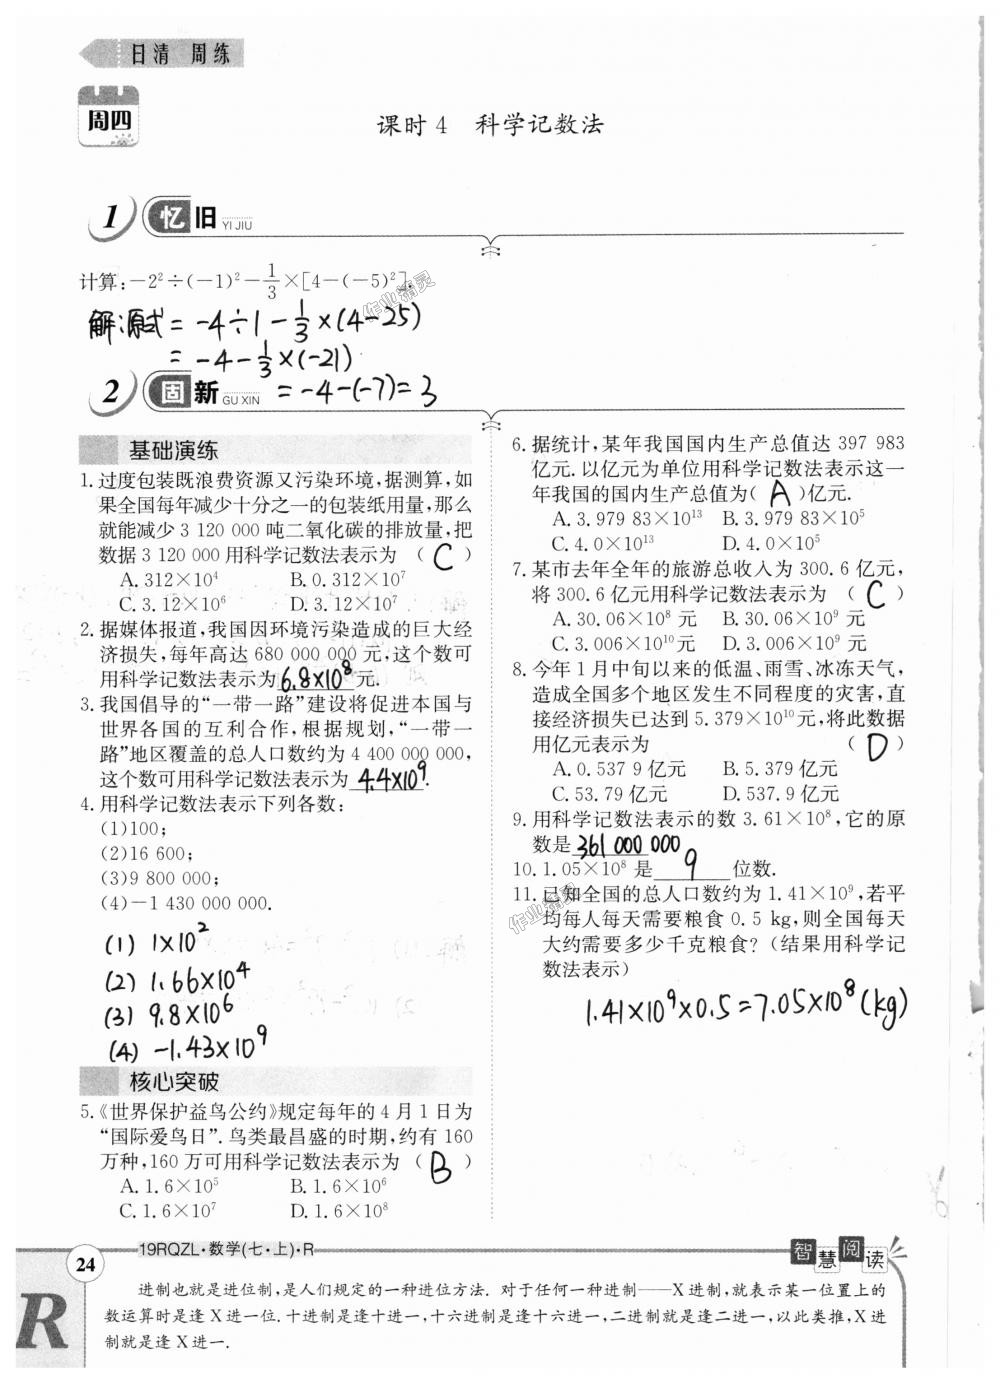 日清 周练
周四
课时4 科学记数法
1 忆旧 YI JIU
计算:-2²÷(-1)²-1/3×[4-(-5)²].
作业精灵
解:原式=-4÷1-1/3×(4-25)
=-4-1/3×(-21)
2 固新 GU XIN =-4-(-7)=3
基础演练
1.过度包装既浪费资源又污染环境,据测算,如
果全国每年减少十分之一的包装纸用量,那么
就能减少3 120 000吨二氧化碳的排放量,把
数据3 120 000用科学记数法表示为 (C)
A.312×10⁴ B.0.312×10⁷
C.3.12×10⁶ D.3.12×10⁷
2.据媒体报道,我国因环境污染造成的巨大经
济损失,每年高达680 000 000元,这个数可
用科学记数法表示为6.8×10⁸元.
3.我国倡导的“一带一路”建设将促进本国与
世界各国的互利合作,根据规划,“一带一
路”地区覆盖的总人口数约为4 400 000 000,
这个数可用科学记数法表示为4.4×10⁹.
4.用科学记数法表示下列各数:
(1)100;
(2)16 600;
(3)9 800 000;
(4)-1 430 000 000.
(1) 1×10²
(2) 1.66×10⁴
(3) 9.8×10⁶
(4) -1.43×10⁹
核心突破
5.《世界保护益鸟公约》规定每年的4月1日为
“国际爱鸟日”.鸟类最昌盛的时期,约有160
万种,160万可用科学记数法表示为 (B)
A.1.6×10⁵ B.1.6×10⁶
C.1.6×10⁷ D.1.6×10⁸
6.据统计,某年我国国内生产总值达397 983
亿元.以亿元为单位用科学记数法表示这一
年我国的国内生产总值为(A)亿元.
A.3.979 83×10¹³ B.3.979 83×10⁵
C.4.0×10¹³ D.4.0×10⁵
7.某市去年全年的旅游总收入为300.6亿元,
将300.6亿元用科学记数法表示为 (C)
A.30.06×10⁸元 B.30.06×10⁹元
C.3.006×10¹⁰元 D.3.006×10⁹元
8.今年1月中旬以来的低温、雨雪、冰冻天气,
造成全国多个地区发生不同程度的灾害,直
接经济损失已达到5.379×10¹⁰元,将此数据
用亿元表示为 (D)
A.0.537 9亿元 B.5.379亿元
C.53.79亿元 D.537.9亿元
9.用科学记数法表示的数3.61×10⁸,它的原
数是361 000 000
10.1.05×10⁸是9位数.
11.已知全国的总人口数约为1.41×10⁹,若平
均每人每天需要粮食0.5 kg,则全国每天
大约需要多少千克粮食?(结果用科学记
数法表示)
作业精灵
1.41×10⁹×0.5=7.05×10⁸(kg)
24
19RQZL·数学(七·上)·R
智慧阅读
R
进制也就是进位制,是人们规定的一种进位方法.对于任何一种进制——X进制,就表示某一位置上的
数运算时是逢X进一位.十进制是逢十进一,十六进制是逢十六进一,二进制就是逢二进一,以此类推,X进
制就是逢X进一.